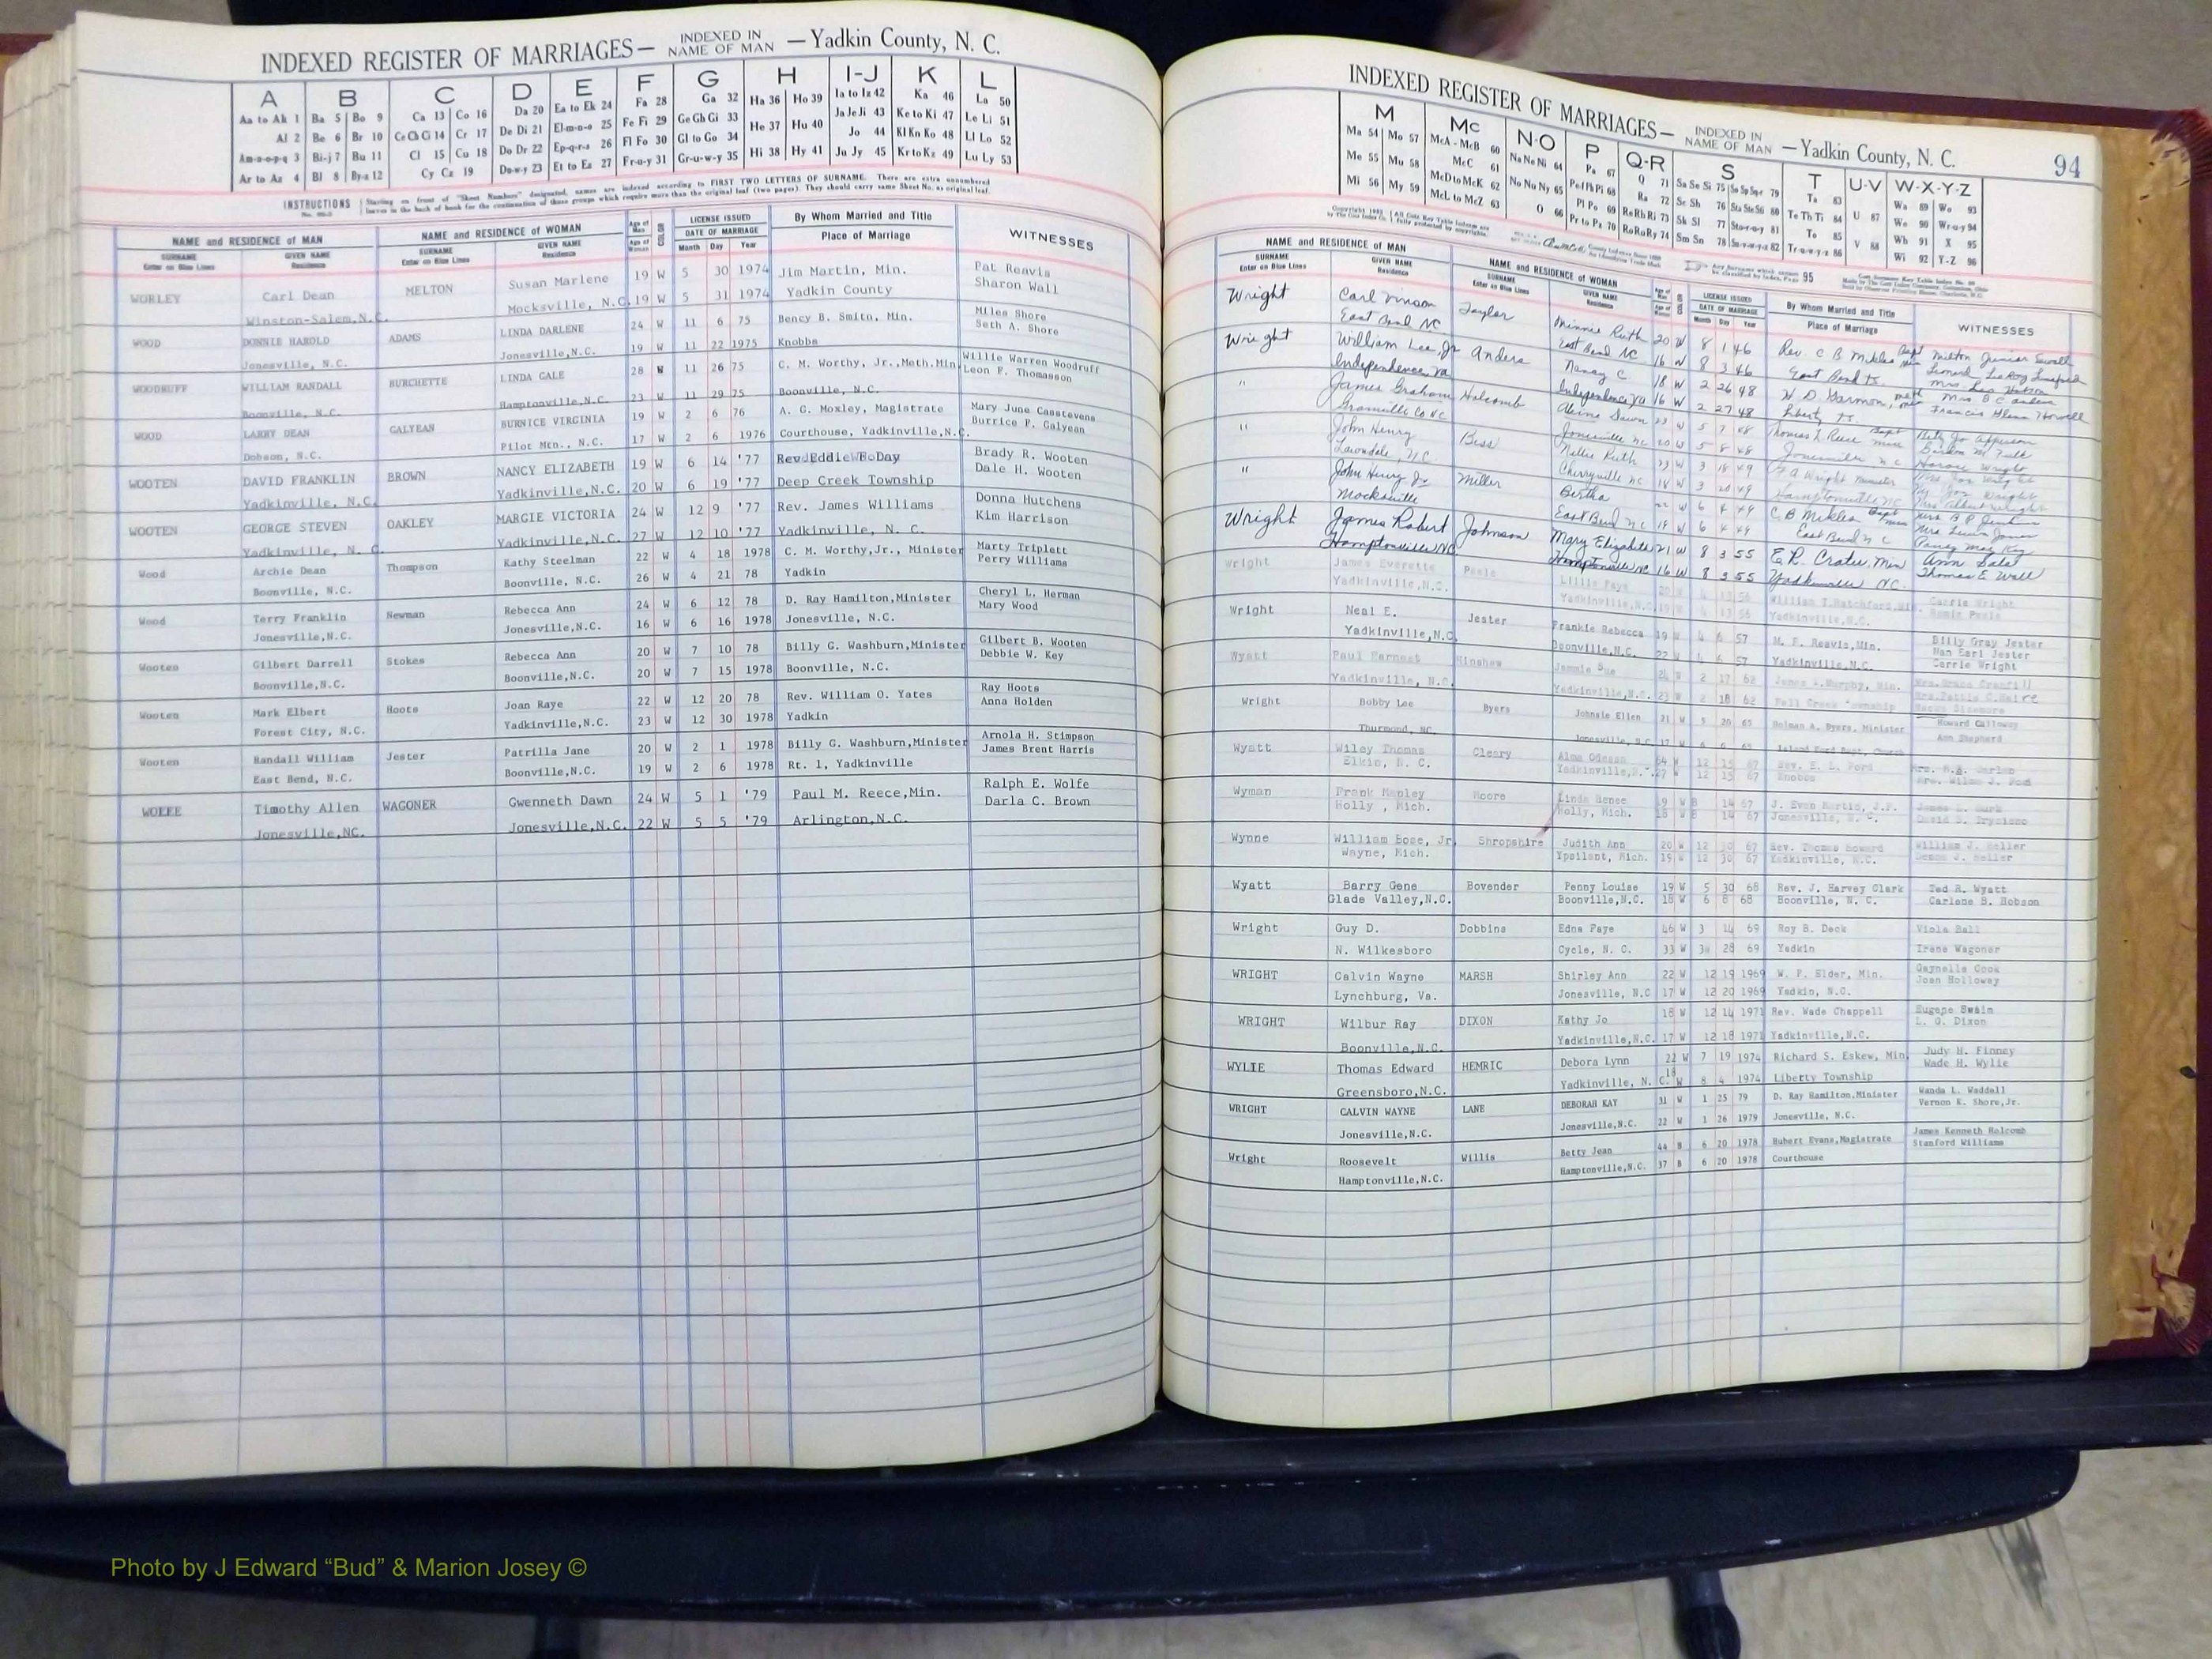 INDEXED REGISTER OF MARRIAGES— INDEXED IN NAME OF MAN —Yadkin County, N. C.
A B C D E F G H I-J K L
Aa to Ak 1 Ba 5 Bo 9 Ca 13 Co 16 Da 20 Ea to Ek 24 Fa 28 Ga 32 Ha 36 Ho 39 Ia to Iz 42 Ka 46 La 50
Al 2 Be 6 Br 10 Ce Ch Ci 14 Cr 17 De Di 21 El-m-n-o 25 Fe Fi 29 Ge Gh Gi 33 He 37 Hu 40 Ja Je Ji 43 Ke to Ki 47 Le Li 51
Am-n-o-p-q 3 Bi-j 7 Bu 11 Cl 15 Cu 18 Do Dr 22 Ep-q-r-s 26 Fl Fo 30 Gl to Go 34 Hi 38 Hy 41 Jo 44 Kl Kn Ko 48 Ll Lo 52
Ar to Az 4 Bl 8 By-z 12 Cy Cz 19 Du-w-y 23 Et to Ez 27 Fr-u-y 31 Gr-u-w-y 35 Ju Jy 45 Kr to Kz 49 Lu Ly 53
INSTRUCTIONS Starting on front of "Sheet Numbers" designated, names are indexed according to FIRST TWO LETTERS OF SURNAME. There are extra unnumbered
leaves in the back of book for the continuation of those groups which require more than the original leaf (two pages). They should carry same Sheet No. as original leaf.
NAME and RESIDENCE OF MAN NAME and RESIDENCE OF WOMAN LICENSE ISSUED By Whom Married and Title WITNESSES
SURNAME GIVEN NAME SURNAME GIVEN NAME DATE OF MARRIAGE Place of Marriage
Enter on Blue Lines Residence Enter on Blue Lines Residence Month Day Year
WORLEY Carl Dean MELTON Susan Marlene 19 W 5 30 1974 Jim Martin, Min. Pat Reavis
Winston-Salem,N.C. Mocksville, N.C. 19 W 5 31 1974 Yadkin County Sharon Wall
WOOD DONNIE HAROLD ADAMS LINDA DARLENE 24 W 11 6 75 Bency B. Smith, Min. Miles Shore
Jonesville, N.C. Jonesville,N.C. 19 W 11 22 1975 Knobbs Seth A. Shore
WOODRUFF WILLIAM RANDALL BURCHETTE LINDA GALE 28 W 11 26 75 C. M. Worthy, Jr.,Meth.Min Willie Warren Woodruff
Boonville, N.C. Hamptonville,N.C. 23 W 11 29 75 Boonville, N.C. Leon F. Thomasson
WOOD LARRY DEAN GALYEAN BURNICE VIRGINIA 19 W 2 6 76 A. G. Moxley, Magistrate Mary June Casstevens
Dobson, N.C. Pilot Mtn., N.C. 17 W 2 6 1976 Courthouse, Yadkinville,N.C. Burrice F. Galyean
WOOTEN DAVID FRANKLIN BROWN NANCY ELIZABETH 19 W 6 14 '77 Rev. Eddie Day Brady R. Wooten
Yadkinville, N.C. Yadkinville,N.C. 20 W 6 19 '77 Deep Creek Township Dale H. Wooten
WOOTEN GEORGE STEVEN OAKLEY MARGIE VICTORIA 24 W 12 9 '77 Rev. James Williams Donna Hutchens
Yadkinville, N. C. Yadkinville,N.C. 27 W 12 10 '77 Yadkinville, N. C. Kim Harrison
Wood Archie Dean Thompson Kathy Steelman 22 W 4 18 1978 C. M. Worthy,Jr., Minister Marty Triplett
Boonville, N.C. Boonville, N.C. 26 W 4 21 78 Yadkin Perry Williams
Wood Terry Franklin Newman Rebecca Ann 24 W 6 12 78 D. Ray Hamilton,Minister Cheryl L. Herman
Jonesville,N.C. Jonesville,N.C. 16 W 6 16 1978 Jonesville, N.C. Mary Wood
Wooten Gilbert Darrell Stokes Rebecca Ann 20 W 7 10 78 Billy G. Washburn,Minister Gilbert B. Wooten
Boonville,N.C. Boonville,N.C. 20 W 7 15 1978 Boonville, N.C. Debbie W. Key
Wooten Mark Elbert Hoots Joan Raye 22 W 12 20 78 Rev. William O. Yates Ray Hoots
Forest City, N.C. Yadkinville,N.C. 23 W 12 30 1978 Yadkin Anna Holden
Wooten Randall William Jester Patrilla Jane 20 W 2 1 1978 Billy G. Washburn,Minister Arnola H. Stimpson
East Bend, N.C. Boonville,N.C. 19 W 2 6 1978 Rt. 1, Yadkinville James Brent Harris
WOLFE Timothy Allen WAGONER Gwenneth Dawn 24 W 5 1 '79 Paul M. Reece,Min. Ralph E. Wolfe
Jonesville,NC. Jonesville,N.C. 22 W 5 5 '79 Arlington,N.C. Darla C. Brown
INDEXED REGISTER OF MARRIAGES— INDEXED IN NAME OF MAN —Yadkin County, N. C. 94
M Mc N-O P Q-R S T U-V W-X-Y-Z
Ma 54 Mo 57 McA - McB 60 Na Ne Ni 64 Pa 67 Q 71 Sa Sc Si 75 So Sp Sq-r 79 Ta 83 Wa 89 Wo 93
Me 55 Mu 58 McC 61 No Nu Ny 65 Pe Pf Ph Pi 68 Ra 72 Se Sh 76 Sta Ste Sti 80 Te Th Ti 84 U 87 We 90 Wr-u-y 94
Mi 56 My 59 McD to McK 62 O 66 Pl Po 69 Re Rh Ri 73 Sk Sl 77 Sto-r-u-y 81 To 85 Wh 91 X 95
McL to McZ 63 Pr to Pz 70 Ro Ru Ry 74 Sm Sn 78 Su-v-w-y-z 82 Tr-u-w-y-z 86 V 88 Wi 92 Y-Z 96
NAME and RESIDENCE OF MAN NAME and RESIDENCE OF WOMAN LICENSE ISSUED By Whom Married and Title WITNESSES
SURNAME GIVEN NAME SURNAME GIVEN NAME DATE OF MARRIAGE Place of Marriage
Enter on Blue Lines Residence Enter on Blue Lines Residence Month Day Year
Wright Carl Vinson Taylor Minnie Ruth 20 W 8 1 46 Rev. C B Mikles Milton Junior
East Bend NC East Bend NC 16 W 8 3 46 East Bend
Wright William Lee, Jr Anders Nancy C 18 W 2 26 48 W D Garmon,
Independence, Va Independence Va 16 W 2 27 48 Liberty
" James Graham Holcomb Dawn W 5 7 48 Thomas L Reece
Granville Co NC Jonesville NC 20 W 5 8 48 Jonesville N C
" John Henry Biss Nellie Ruth 23 W 3 18 49 Wright Minister
Lawndale, N.C. Cherryville NC 18 W 3 20 49 Hamptonville NC
" John Henry Jr Miller Bertha W 6 4 49 C. B Mikles
Mocksville East Bend N C 18 W 6 4 49 East Bend N C
Wright James Robert Johnson Mary Elizabeth 21 W 8 3 55 E. R. Crater, Min Ann
Hamptonville NC Hamptonville NC 16 W 8 3 55 Yadkinville N.C. Thomas E Wall
Wright James Everette Lillie Faye Carrie Wright
Yadkinville,N.C. Yadkinville,N.C. Yadkinville,N.C.
Wright Neal E. Jester Frankie Rebecca 19 W 4 6 57 M. F. Reavis,Min. Billy Gray Jester
Yadkinville,N.C. Boonville,N.C. 22 W 4 6 57 Yadkinville,N.C. Nan Earl Jester
Carrie Wright
Wyatt Paul Earnest Hinshaw Jammie Sue W 2 17 62 James Murphy, Min.
Yadkinville, N.C. Yadkinville,N.C. 23 W 2 18 62 Fall Creek Township
Wright Bobby Lee Byers Johnsie Ellen 21 W 5 20 65 Holman A. Byers, Minister Howard Calloway
Thurmond, NC. Jonesville, N.C. 17 W 6 6 65 Island Ford Bapt. Church Ann Shepherd
Wyatt Wiley Thomas Cleary Alma Odessa 64 W 12 15 67 Rev. E. L. Ford
Elkin, N. C. Yadkinville,N. 27 W 12 15 67 Knobbs
Wyman Frank Manley Moore Linda Renee 19 W 14 67 J. Evon Martin, J.P.
Holly , Mich. Holly, Mich. 18 W 14 67 Jonesville, N. C.
Wynne William Bose, Jr. Shropshire Judith Ann 20 W 12 30 67 Rev. Thomas Howard William J. Heller
Wayne, Mich. Ypsilant, Mich. 19 W 12 30 67 Yadkinville, N.C. J. Heller
Wyatt Barry Gene Bovender Penny Louise 19 W 5 30 68 Rev. J. Harvey Clark Ted R. Wyatt
Glade Valley,N.C. Boonville,N.C. 18 W 6 8 68 Boonville, N. C. Carlene B. Hobson
Wright Guy D. Dobbins Edna Faye 46 W 3 14 69 Roy B. Deck Viola Ball
N. Wilkesboro Cycle, N. C. 33 W 3 28 69 Yadkin Irene Wagoner
WRIGHT Calvin Wayne MARSH Shirley Ann 22 W 12 19 1969 W. F. Elder, Min. Gaynelle Cook
Lynchburg, Va. Jonesville, N.C 17 W 12 20 1969 Yadkin, N.C. Joan Holloway
WRIGHT Wilbur Ray DIXON Kathy Jo 18 W 12 14 1971 Rev. Wade Chappell Eugene Swaim
Boonville,N.C. Yadkinville,N.C. 17 W 12 18 1971 Yadkinville,N.C. L. G. Dixon
WYLIE Thomas Edward HEMRIC Debora Lynn 22 W 7 19 1974 Richard S. Eskew, Min. Judy H. Finney
Greensboro,N.C. Yadkinville, N. C. 18 W 8 4 1974 Liberty Township Wade H. Wylie
WRIGHT CALVIN WAYNE LANE DEBORAH KAY 31 W 1 25 79 D. Ray Hamilton,Minister Wanda L. Waddell
Jonesville,N.C. Jonesville,N.C. 22 W 1 26 1979 Jonesville, N.C. Vernon K. Shore,Jr.
Wright Roosevelt Willis Betty Jean 44 B 6 20 1978 Hubert Evans,Magistrate James Kenneth Holcomb
Hamptonville,N.C. Hamptonville,N.C. 37 B 6 20 1978 Courthouse Stanford Williams
Photo by J Edward “Bud” & Marion Josey ©